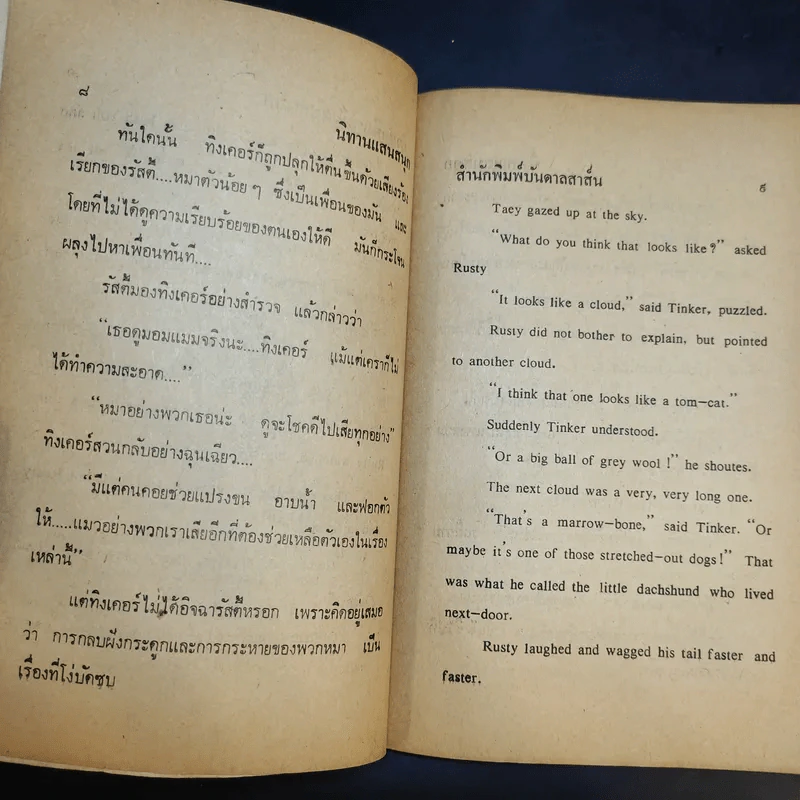 ๘
นิทานแสนสนุก
ทันใดนั้น ทิงเคอร์ก็ถูกปลุกให้ตื่นขึ้นด้วยเสียงร้อง
เรียกของรัสตี้....หมาตัวน้อย ๆ ซึ่งเป็นเพื่อนของมัน และ
โดยที่ไม่ได้ดูความเรียบร้อยของตนเองให้ดี มันก็กระโจน
ผลุงไปหาเพื่อนทันที....
รัสตี้มองทิงเคอร์อย่างสำรวจ แล้วกล่าวว่า
“เธอดูมอมแมมจริงนะ....ทิงเคอร์ แม้แต่เคราก็ไม่
ได้ทำความสะอาด....”
“หมาอย่างพวกเธอน่ะ ดูจะโชคดีไปเสียทุกอย่าง”
ทิงเคอร์สวนกลับอย่างฉุนเฉียว....
“มีแต่คนคอยช่วยแปรงขน อาบน้ำ และฟอกตัว
ให้.....แมวอย่างพวกเราเสียอีกที่ต้องช่วยเหลือตัวเองในเรื่อง
เหล่านี้”
แต่ทิงเคอร์ไม่ได้อิจฉารัสตี้หรอก เพราะคิดอยู่เสมอ
ว่า การกลบฝังกระดูกและการกระหายของพวกหมา เป็น
เรื่องที่โง่บัดซบ
สำนักพิมพ์บันดาลสาส์น
๕
Taey gazed up at the sky.
“What do you think that looks like?” asked
Rusty
“It looks like a cloud,” said Tinker, puzzled.
Rusty did not bother to explain, but pointed
to another cloud.
“I think that one looks like a tom—cat.”
Suddenly Tinker understood.
“Or a big ball of grey wool !” he shoutes.
The next cloud was a very, very long one.
“That's a marrow—bone,” said Tinker. “Or
maybe it's one of those stretched—out dogs!” That
was what he called the little dachshund who lived
next—door.
Rusty laughed and wagged his tail faster and
faster.